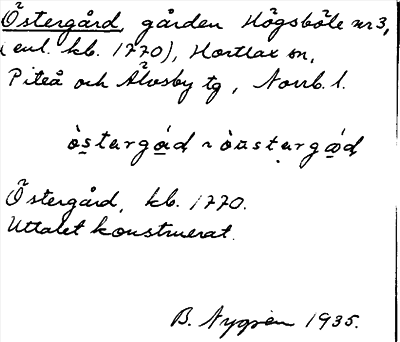 Östergård, gården Högsböle nr 3,
(enl. kb. 1770), Hortlax sn,
Piteå och Älvsby tg, Norrb. l.
òstərgɑ́d ~ òʊstərgɑ́d
Östergård, kb. 1770.
Uttalet konstruerat.
B. Nygren 1935.